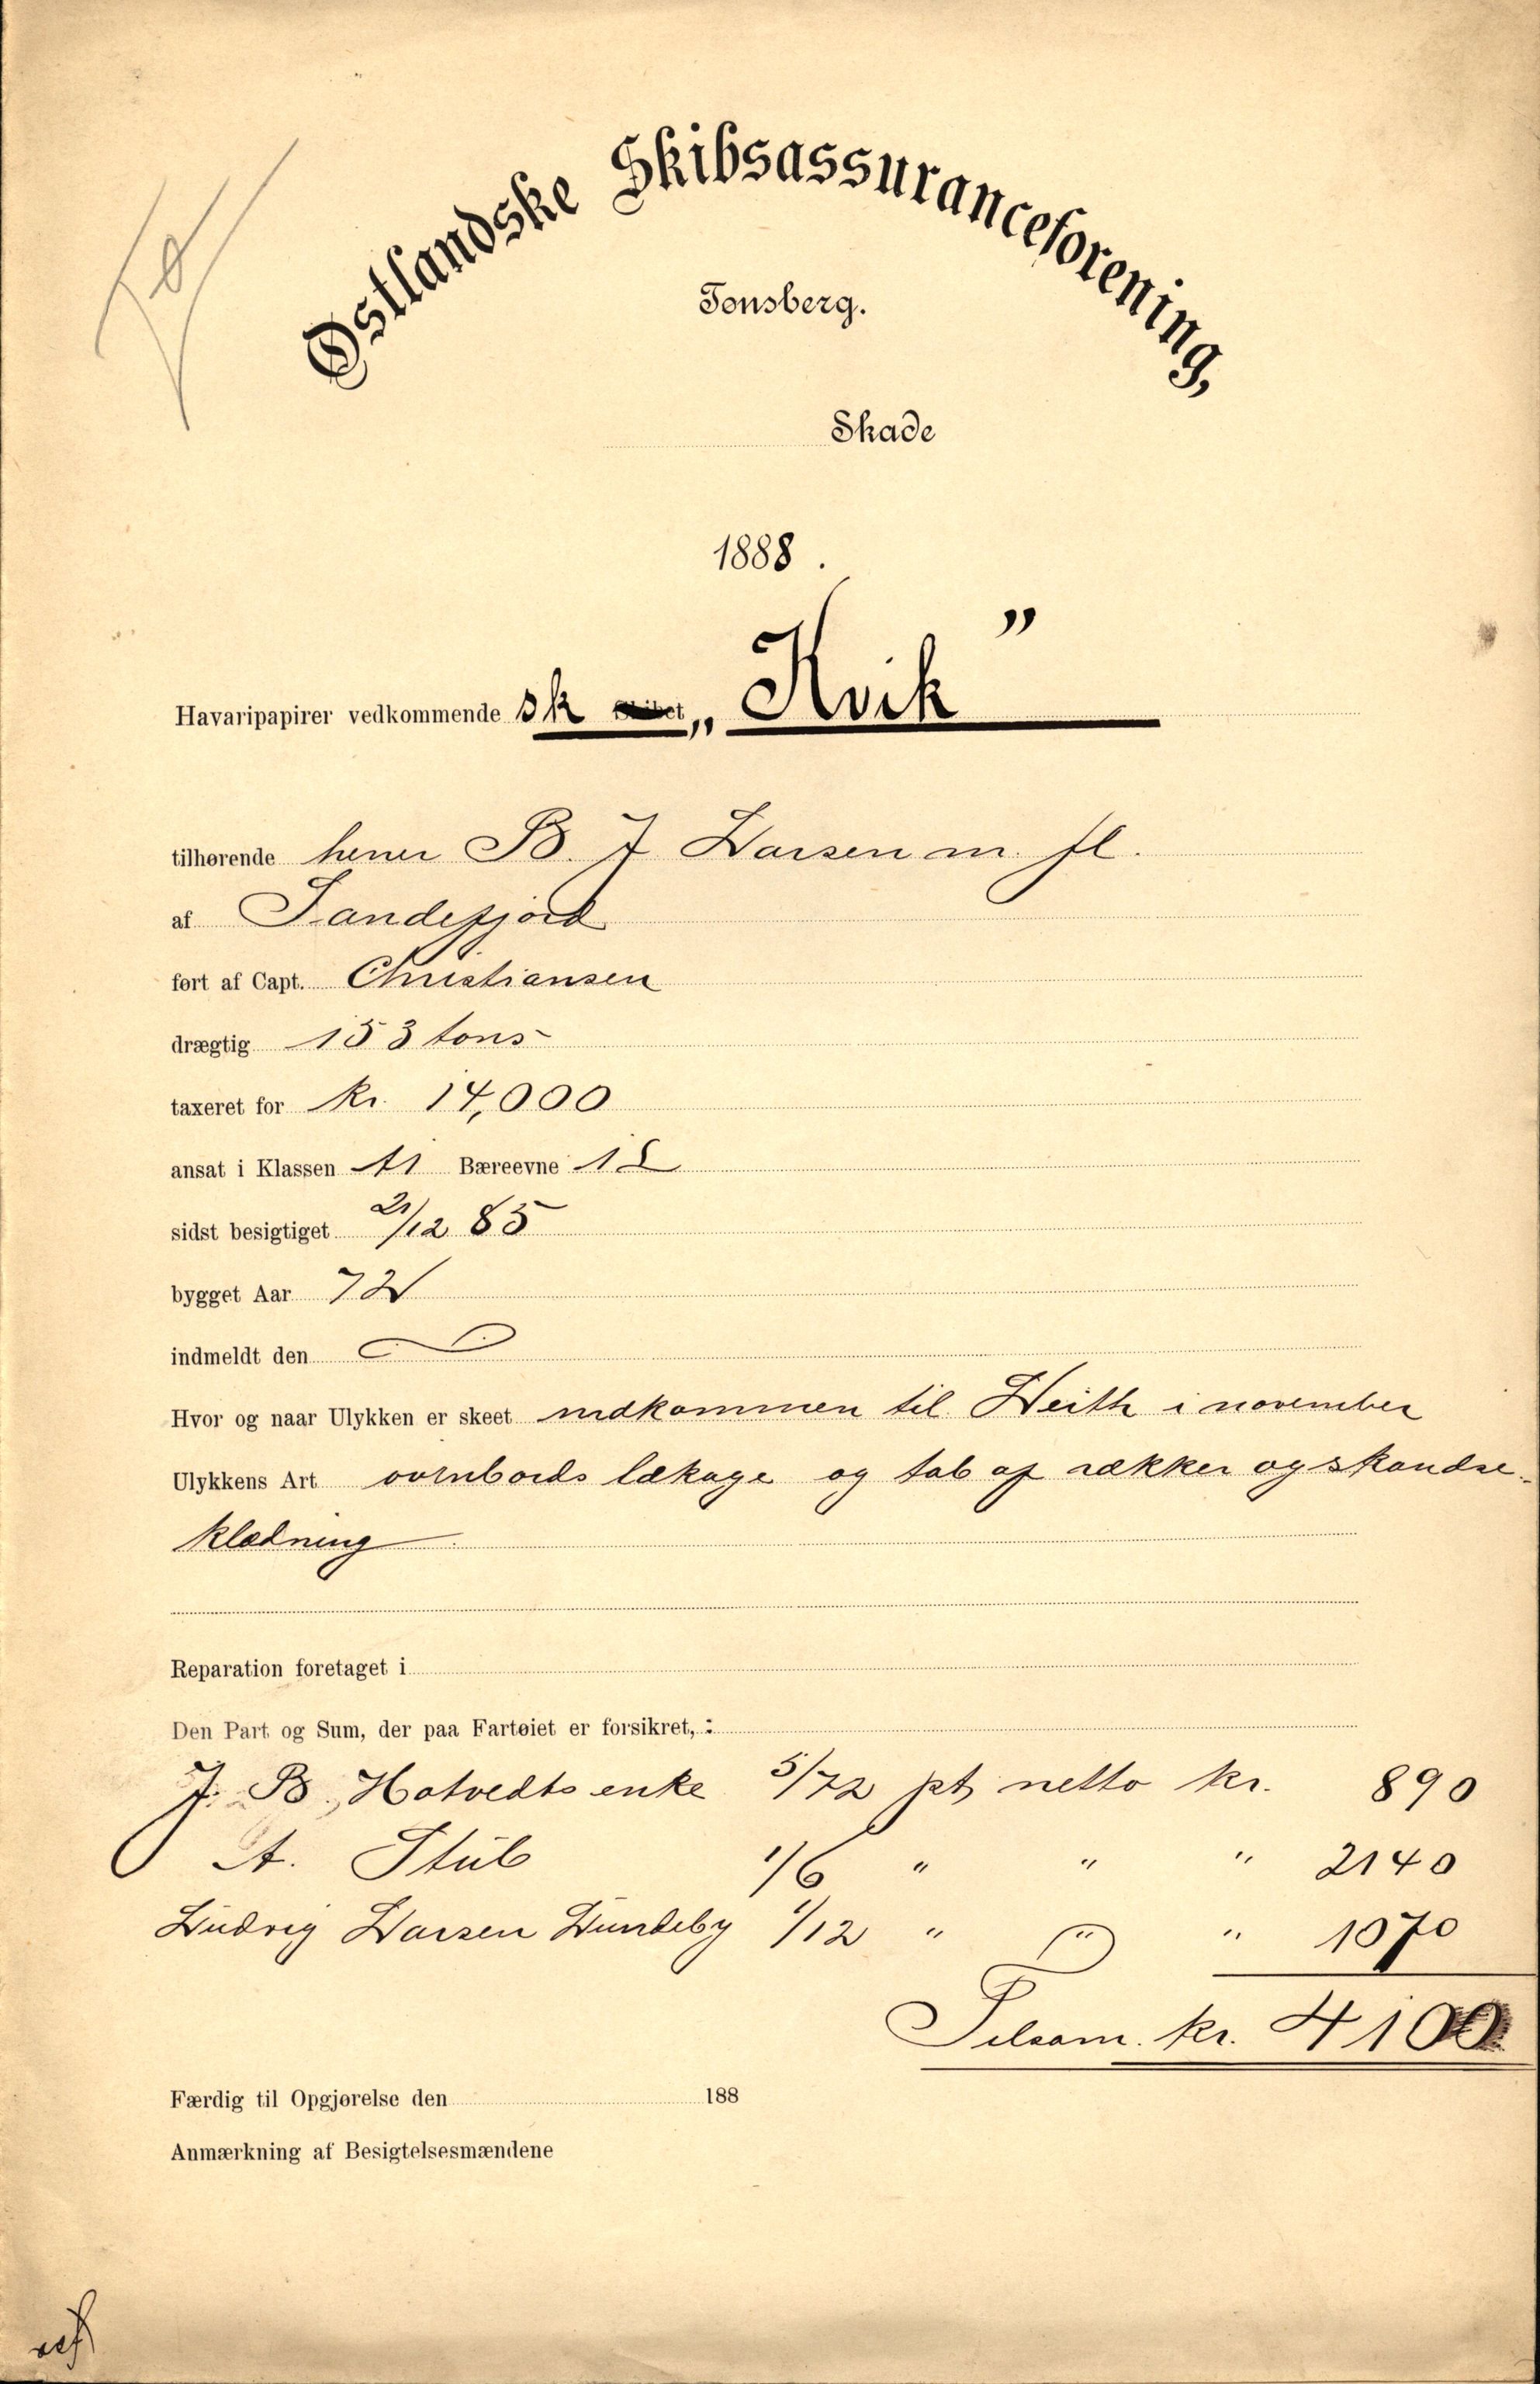 Østlandske Skibsassuranceforening,
Tønsberg.
Skade
1888.
Havaripapirer vedkommende Sk Skibet „Kvik”
tilhørende herrer B. J Larsen m. fl.
af Sandefjord
ført af Capt. Christiansen
drægtig 153 tons
taxeret for kr. 14,000
ansat i Klassen A1 Bæreevne
sidst besigtiget 21/12 85
bygget Aar 72
indmeldt den
Hvor og naar Ulykken er skeet indkommen til Leith i november
Ulykkens Art ovenbords lækage og tab af rækker og skandse-
klædning
Reparation foretaget i
Den Part og Sum, der paa Fartøiet er forsikret, :
J. B. Hotvedts enke 5/72 pt netto kr. 890
A. Stub 1/6 " " " 2140
Ludvig Larsen Lundeby 1/12 " " " 1070
Tilsam. kr. 4100
Færdig til Opgjørelse den 188
Anmærkning af Besigtelsesmændene